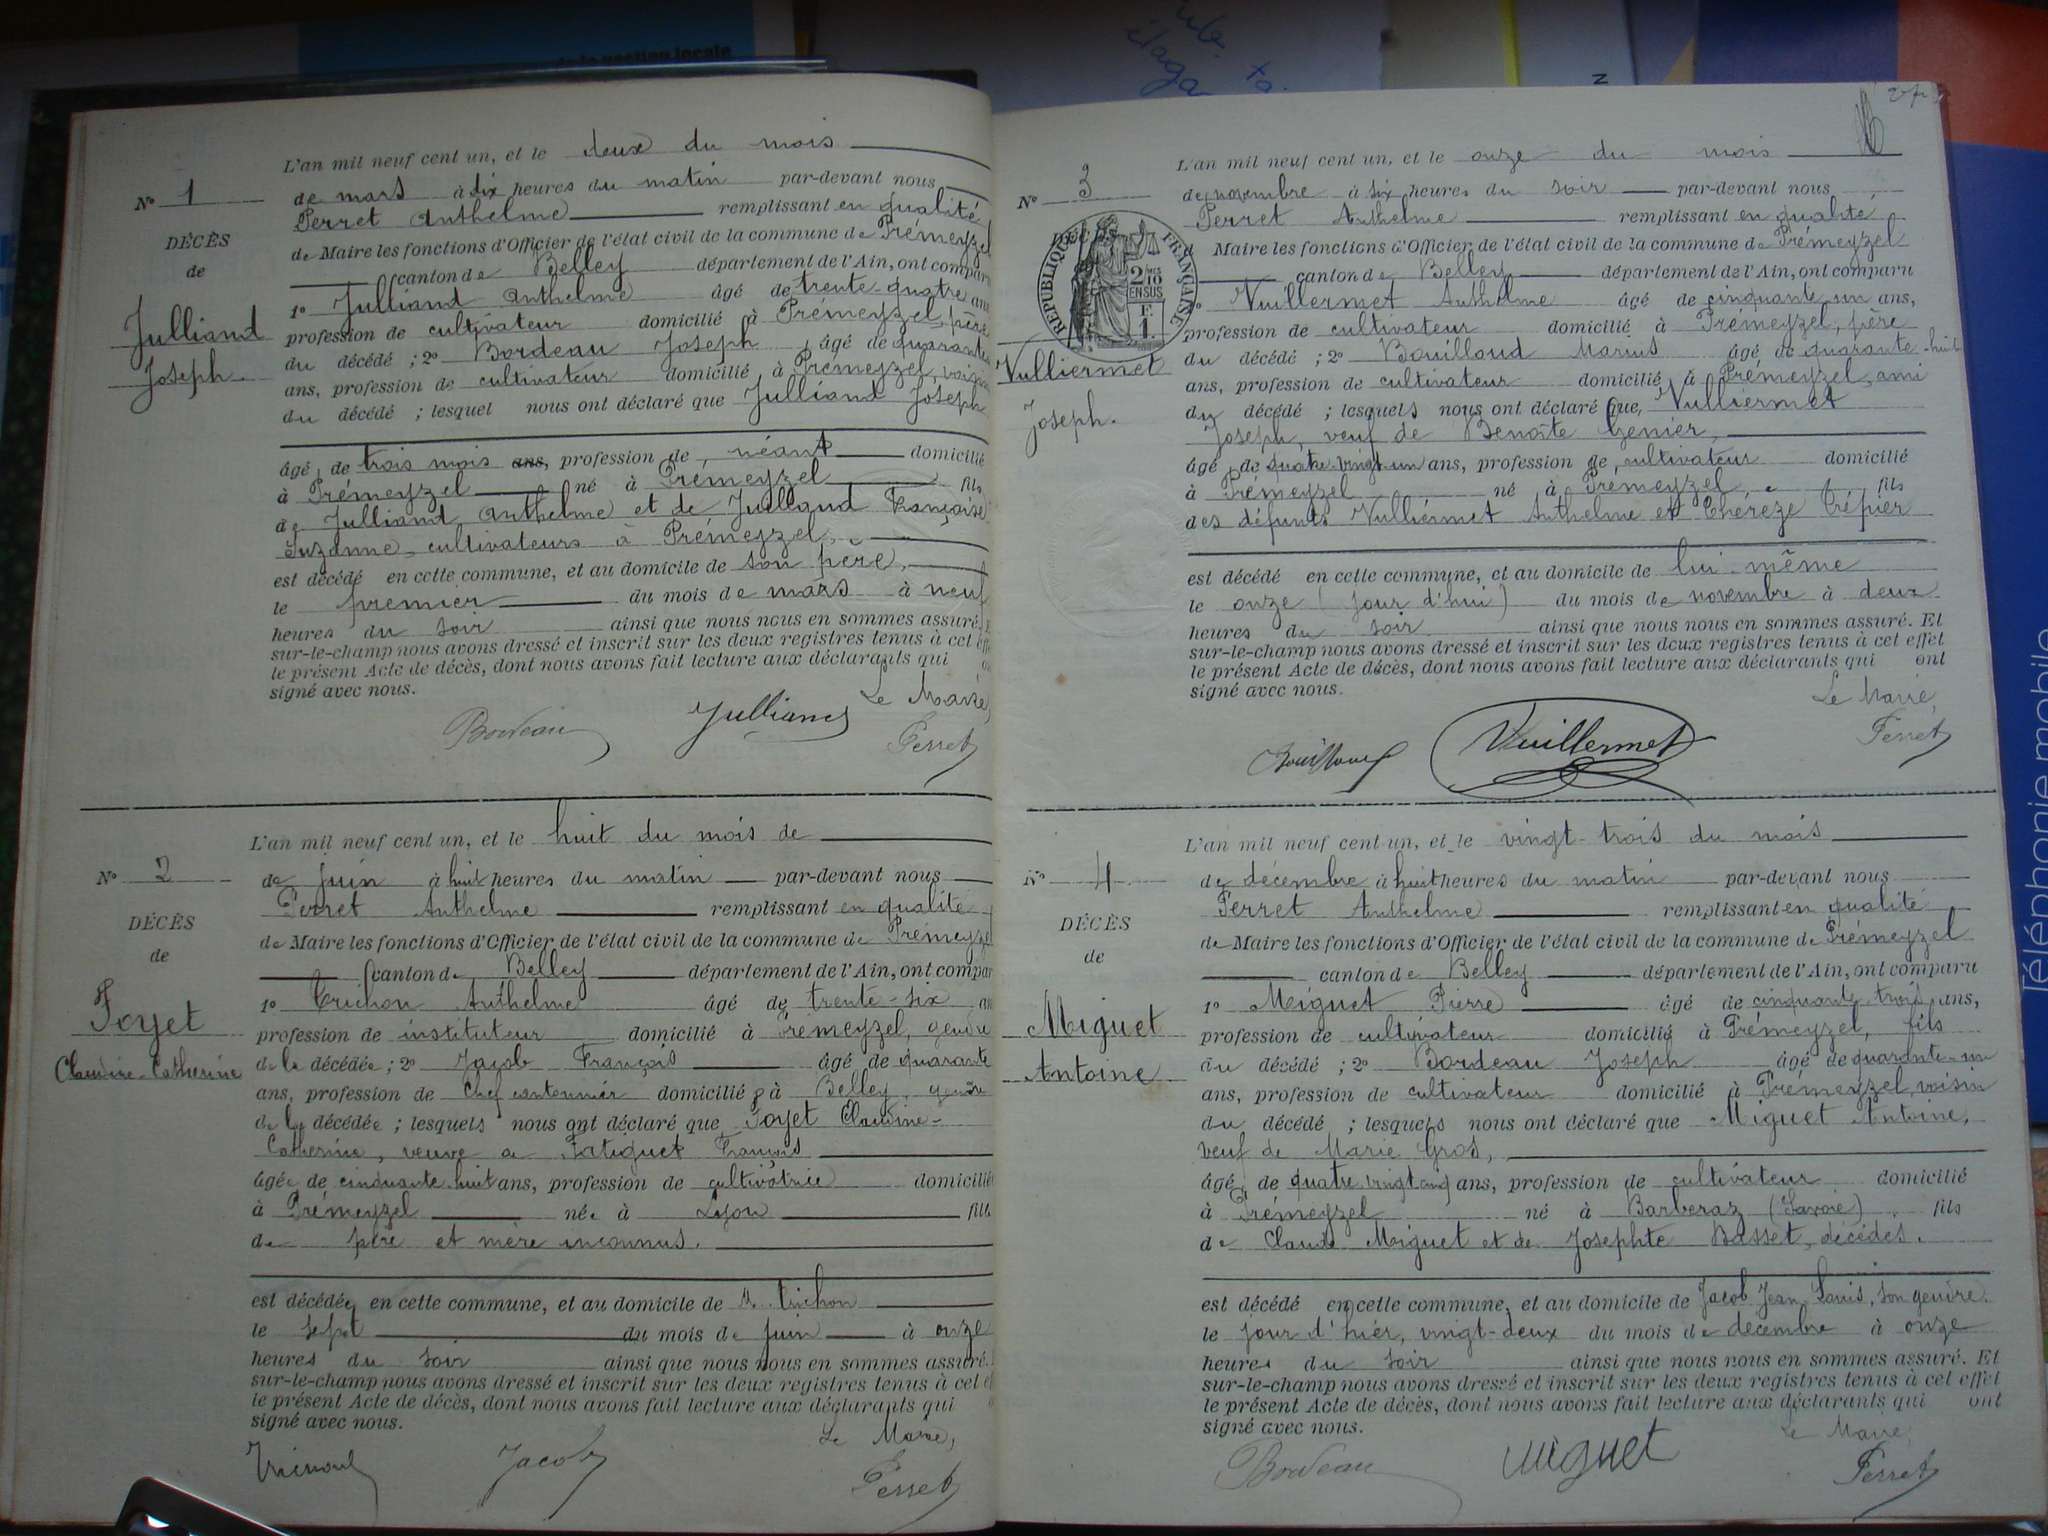 de la gestion locale
L'an mil neuf cent un, et le deux du mois
N° 1
de mars à dix heures du matin par-devant nous
Perret Anthelme remplissant en qualité
DÉCÈS
de Maire les fonctions d'Officier de l'état civil de la commune de Prémeyzel
de
canton de Belley département de l'Ain, ont comparu
1° Julliand Anthelme âgé de trente-quatre ans
Julliand
profession de cultivateur domicilié à Prémeyzel, père
Joseph.
du décédé ; 2° Bordeau Joseph, âgé de quarante
ans, profession de cultivateur domicilié à Prémeyzel, voisin
du décédé ; lesquel nous ont déclaré que Julliand Joseph
âgé de trois mois ans, profession de néant domicilié
à Prémeyzel né à Prémeyzel fils
de Julliand Anthelme et de Juilland Françoise
Suzanne, cultivateurs à Prémeyzel,
est décédé en cette commune, et au domicile de son père,
le premier du mois de mars à neuf
heures du soir ainsi que nous nous en sommes assuré.
sur-le-champ nous avons dressé et inscrit sur les deux registres tenus à cet eff
le présent Acte de décès, dont nous avons fait lecture aux déclarants qui
signé avec nous.
Le Maire,
Bordeau Julliand Perret
L'an mil neuf cent un, et le huit du mois de
N° 2
de juin à huit heures du matin par-devant nous
Perret Anthelme remplissant en qualité
DÉCÈS
de Maire les fonctions d'Officier de l'état civil de la commune de Prémeyzel
de
canton de Belley département de l'Ain, ont compar
1° Trichon Anthelme âgé de trente-six an
Foyet
profession de instituteur domicilié à Prémeyzel, gendre
Claudine-Catherine
de la décédée ; 2° Jacob François âgé de quarante
ans, profession de Chef cantonnier domicilié à Belley, gendre
de la décédée ; lesquels nous ont déclaré que Foyet Claudine-
Catherine, veuve de François
âgée de cinquante-huit ans, profession de cultivatrice domicilié
à Prémeyzel née à Lyon fille
de père et mère inconnus.
est décédée en cette commune, et au domicile de Trichon
le sept du mois de juin à onze
heures du soir ainsi que nous nous en sommes assuré.
sur-le-champ nous avons dressé et inscrit sur les deux registres tenus à cet e
le présent Acte de décès, dont nous avons fait lecture aux déclarants qui
signé avec nous.
Le Maire,
Trichon Jacob Perret
L'an mil neuf cent un, et le onze du mois
N° 3
de novembre à six heures du soir par-devant nous
Perret Anthelme remplissant en qualité
RÉPUBLIQUE FRANÇAISE
2/10 EN SUS
F. 1
Maire les fonctions d'Officier de l'état civil de la commune de Prémeyzel
canton de Belley département de l'Ain, ont comparu
Vuillermet Anthelme âgé de cinquante-un ans,
profession de cultivateur domicilié à Prémeyzel, père
Vulliermet
du décédé ; 2° Bouilloud Marius âgé de quarante-huit
ans, profession de cultivateur domicilié à Prémeyzel, ami
Joseph.
du décédé ; lesquels nous ont déclaré que, Vulliermet
Joseph, veuf de Benoîte
âgé de quatre-vingt-un ans, profession de cultivateur domicilié
à Prémeyzel né à Prémeyzel fils
des défunts Vulliermet Anthelme et Thérèze Trépier
est décédé en cette commune, et au domicile de lui-même
le onze (jour d'hui) du mois de novembre à deux
heures du soir ainsi que nous nous en sommes assuré. Et
sur-le-champ nous avons dressé et inscrit sur les deux registres tenus à cet effet
le présent Acte de décès, dont nous avons fait lecture aux déclarants qui ont
signé avec nous.
Le Maire,
Bouilloud Vuillermet Perret
L'an mil neuf cent un, et le vingt-trois du mois
N° 4
de décembre à huit heures du matin par-devant nous
Perret Anthelme remplissant en qualité
DÉCÈS
de Maire les fonctions d'Officier de l'état civil de la commune de Prémeyzel
de
canton de Belley département de l'Ain, ont comparu
1° Miguet Pierre âgé de cinquante-trois ans,
Miguet
profession de cultivateur domicilié à Prémeyzel, fils
Antoine
du décédé ; 2° Bordeau Joseph âgé de quarante-un
ans, profession de cultivateur domicilié à Prémeyzel, voisin
du décédé ; lesquels nous ont déclaré que Miguet Antoine,
veuf de Marie Gros,
âgé de quatre-vingt ans, profession de cultivateur domicilié
à Prémeyzel né à Barberaz (Savoie) fils
de Claude Miguet et de Josephte Basset, décédés.
est décédé en cette commune, et au domicile de Jacob Jean Louis, son gendre.
le jour d'hier, vingt-deux du mois de décembre à onze
heures du soir ainsi que nous nous en sommes assuré. Et
sur-le-champ nous avons dressé et inscrit sur les deux registres tenus à cet effet
le présent Acte de décès, dont nous avons fait lecture aux déclarants qui ont
signé avec nous.
Le Maire,
Bordeau Miguet Perret
Téléphonie mobile